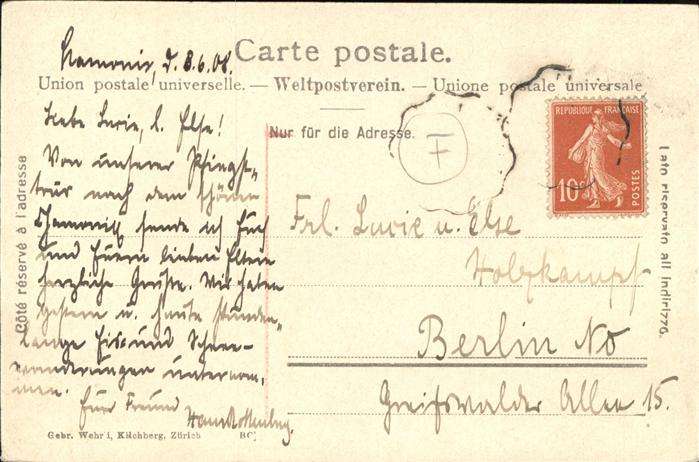 Chamonix, d. 8.6.08.
Carte postale.
Union postale universelle. — Weltpostverein. — Unione postale universale
Nur für die Adresse.
Côté réservé à l'adresse
Lato riservato all indirizzo.
REPUBLIQUE FRANÇAISE
10
POSTES
F
Liebe Lucie, l. Else!
Von unserer Pfingst-
tour nach dem schönen
Chamonix sende ich Euch
und Euern lieben Eltern
herzliche Grüße. Wir haben
gestern u. heute stunden-
lange Eis und Schnee-
wanderungen unternom-
men.
Euer Freund
Hans
Frl. Lucie u. Else
Holzkampf
Berlin NO
Greifswalder Allee 15.
Gebr. Wehrli, Kilchberg, Zürich